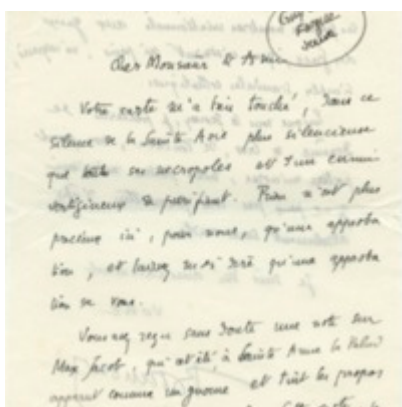 Cher Monsieur & Ami
Votre carte m'a bien touché, dans ce
silence de la Sainte Aose plus silencieuse
que ses necropoles et d'un ennui
vertigineux & purifiant. Rien n'est plus
précieux ici, pour nous, qu'une approba
tion, et laissez moi dire qu'une approba
tion de vous.
Vous avez reçu sans doute une note sur
Max Jacob, qui a été, à Sainte Anne le
apparut comme un gnome et tint les propos